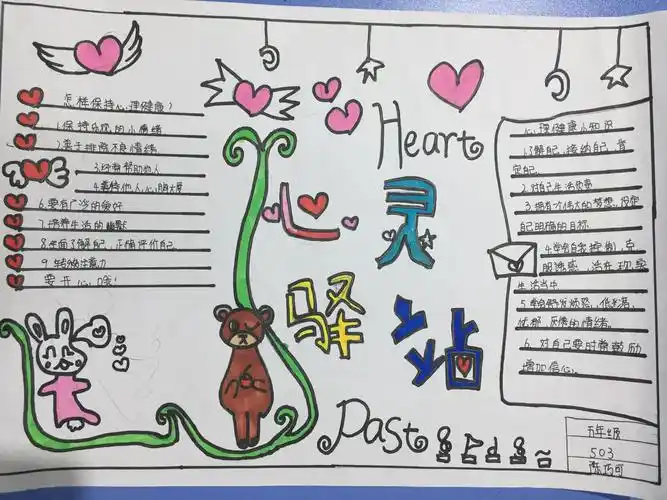 怎样保持心理健康?
1.保持乐观的小情绪
2.善于排解不良情绪
3.经常帮助他人
4.善待他人,心胸大度
6.要有广泛的爱好
7.培养生活的幽默
8.全面了解自己,正确评价自己
9.转移注意力
要开心哦!
Heart
心灵
驿站
Past
心理健康小知识
1.了解自己,接纳自己,肯
定自己.
2.对自己生活负责
3.拥有才伟大的梦想,设定
自己明确的目标
4.学会自我控制,克
服诱惑,活在现实
生活当中
5.学会舒发烦恼,低落,
忧郁,厌倦的情绪.
6.对自己要时常鼓励
增加信心.
五年级
503
陈巧可